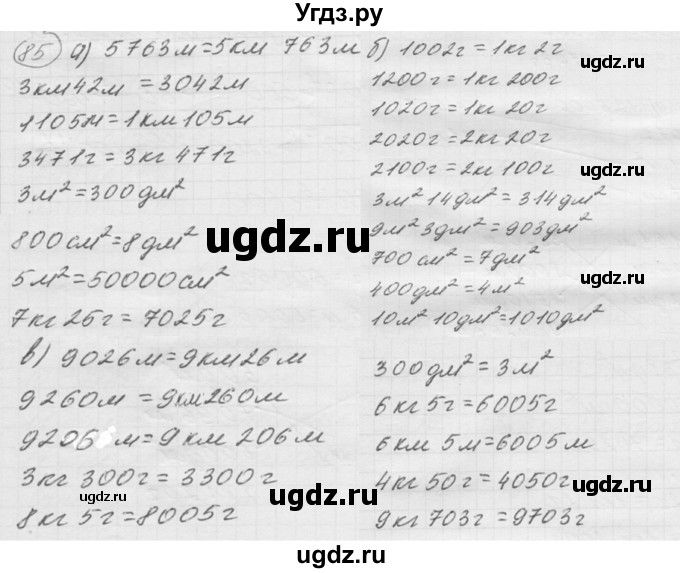 Угдз.ру
85 а) 5763м=5км 763м
3км42м = 3042м
1105м=1км105м
3471г=3кг471г
3м²=300дм²
800см²=8дм²
5м²=50000см²
7кг26г=7025г
б) 1002г=1кг2г
1200г=1кг200г
1020г=1кг20г
2020г=2кг20г
2100г=2кг100г
3м²14дм²=314дм²
9м²3дм²=903дм²
700см²=7дм²
400дм²=4м²
10м²10дм²=1010дм²
в) 9026м=9км26м
9260м =9км260м
9206м=9км 206м
3кг300г=3300г
8кг5г=8005г
300дм²=3м²
6кг5г=6005г
6км 5м=6005м
4кг50г=4050г
9кг703г=9703г
ugdz.ru
ugdz.ru
ugdz.ru
ugdz.ru
ugdz.ru
ugdz.ru
ugdz.ru
ugdz.ru
ugdz.ru